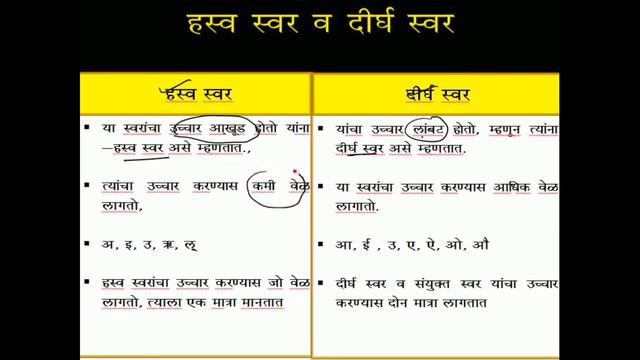 हस्व स्वर व दीर्घ स्वर
हस्व स्वर
या स्वरांचा उच्चार आखूड होतो यांना
–हस्व स्वर असे म्हणतात.,
त्यांचा उच्चार करण्यास कमी वेळ
लागतो,
अ, इ, उ, ऋ, ल्
हस्व स्वरांचा उच्चार करण्यास जो वेळ
लागतो, त्याला एक मात्रा मानतात
दीर्घ स्वर
यांचा उच्चार लांबट होतो, म्हणून त्यांना
दीर्घ स्वर असे म्हणतात.
या स्वरांचा उच्चार करण्यास आधिक वेळ
लागातो.
आ, ई , उ, ए, ऐ, ओ, औ
दीर्घ स्वर व संयुक्त स्वर यांचा उच्चार
करण्यास दोन मात्रा लागतात